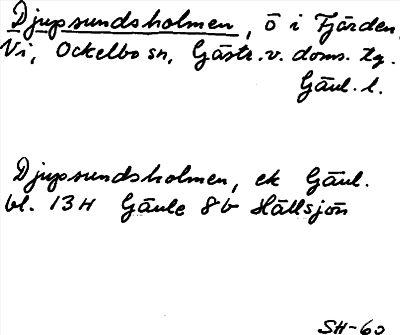 Djupsundsholmen, ö i Fjärden,
Vi, Ockelbo sn, Gästr. v. doms. tg.
Gävl. l.
Djupsundsholmen, ek Gävl.
bl. 13H Gävle 8b Hällsjön
SH-60